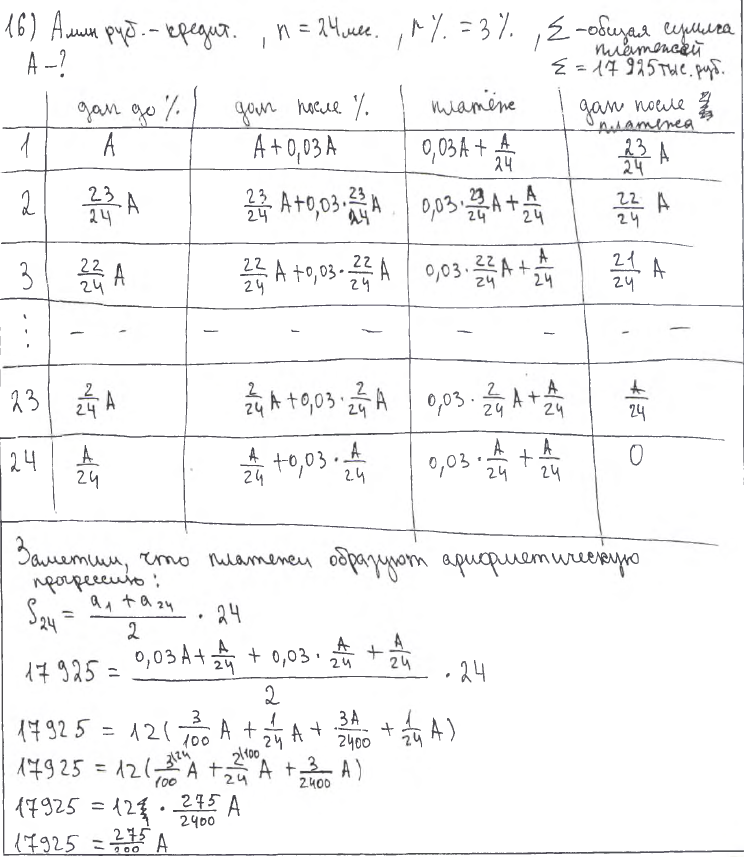 16) A млн руб. - кредит. , n = 24 мес. , r% = 3% , Σ - общая сумма платежей
A - ? Σ = 17 925 тыс. руб.
долг до % долг после % платёж долг после платежа
1 A A + 0,03A 0,03A + A/24 23/24 A
2 23/24 A 23/24 A + 0,03 · 23/24 A 0,03 · 23/24 A + A/24 22/24 A
3 22/24 A 22/24 A + 0,03 · 22/24 A 0,03 · 22/24 A + A/24 21/24 A
⋮ - - - - - - - - -
23 2/24 A 2/24 A + 0,03 · 2/24 A 0,03 · 2/24 A + A/24 A/24
24 A/24 A/24 + 0,03 · A/24 0,03 · A/24 + A/24 0
Заметим, что платежи образуют арифметическую
прогрессию:
S₂₄ = (a₁ + a₂₄)/2 · 24
17 925 = (0,03A + A/24 + 0,03 · A/24 + A/24)/2 · 24
17925 = 12(3/100 A + 1/24 A + 3A/2400 + 1/24 A)
17925 = 12(3\24/100 A + 2\100/24 A + 3/2400 A)
17925 = 12 · 275/2400 A
17925 = 275/200 A